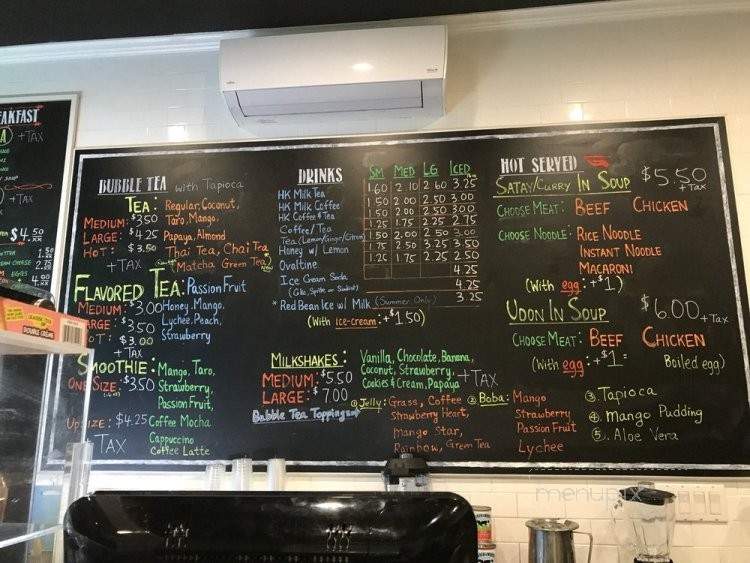 AKFAST
+ TAX
+ TAX
$4.50
1.50
2.75
4.00
BUBBLE TEA with Tapioca
TEA: Regular, Coconut,
MEDIUM: $3.50 Taro, Mango,
LARGE: $4.25 Papaya, Almond
HOT: $3.50 Thai Tea, Chai Tea
+TAX (Matcha Green Tea)
FLAVORED TEA: Passion Fruit
MEDIUM: $3.00 Honey, Mango,
ARGE: $3.50 Lychee, Peach,
OT: $3.00 Strawberry
+ TAX
SMOOTHIE: Mango, Taro,
ONE SIZE: $3.50 Strawberry,
Passion Fruit,
Up size: $4.25 Coffee Mocha
TAX Cappuccino
Coffee Latte
DRINKS SM MED LG ICED
HK Milk Tea 1.60 2.10 2.60 3.25
HK Milk Coffee 1.50 2.00 2.50 3.00
HK Coffee & Tea 1.50 2.00 2.50 3.00
Coffee/Tea 1.25 1.75 2.25 2.75
Tea (Lemon/Ginger/Citron) 1.50 2.00 2.50 3.00
Honey w/ Lemon 1.75 2.50 3.25 3.50
Ovaltine 1.25 1.75 2.25 2.50
4.25
Ice Cream Soda 4.25
(Coke, Sprite or Sunkist)
* Red Bean Ice w/ Milk (Summer Only) 3.25
(With ice-cream: +$1.50)
MILKSHAKES: Vanilla, Chocolate, Banana,
MEDIUM: $5.50 Coconut, Strawberry,
LARGE: $7.00 Cookies & Cream, Papaya + TAX
Bubble Tea Toppings
① Jelly: Grass, Coffee
Strawberry Heart,
Mango Star,
Rainbow, Green Tea
② Boba: Mango
Strawberry
Passion Fruit
Lychee
③ Tapioca
④ Mango Pudding
⑤. Aloe Vera
HOT SERVED
SATAY/CURRY IN SOUP $5.50
+Tax
CHOOSE MEAT: BEEF CHICKEN
CHOOSE NOODLE: RICE NOODLE
INSTANT NOODLE
MACARONI
(With egg: +$1)
UDON IN SOUP $6.00 +Tax
CHOOSE MEAT: BEEF CHICKEN
(With egg: +$1: Boiled egg)
DOUBLE CRÈME
menupix